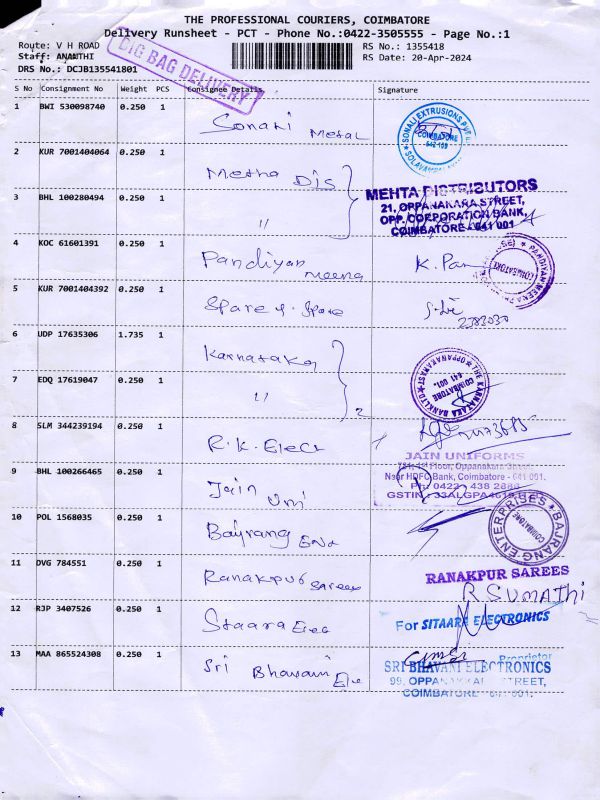 THE PROFESSIONAL COURIERS, COIMBATORE
Delivery Runsheet - PCT - Phone No.:0422-3505555 - Page No.:1
Route: V H ROAD
Staff: ANANTHI
DRS No.: DCJB135541801
DIG BAG DELIVERY
RS No.: 1355418
RS Date: 20-Apr-2024
S No Consignment No Weight PCS Consignee Details Signature
1 BWI 530098740 0.250 1 Sonali Metal
SONALI EXTRUSIONS PVT LTD COIMBATORE 642 109
2 KUR 7001404064 0.250 1 Metha DIS
3 BHL 100280494 0.250 1 "
MEHTA DISTRIBUTORS
21, OPPANAKARA STREET,
OPP. CORPORATION BANK,
COIMBATORE - 641 001
4 KOC 61601391 0.250 1 Pandiyan Meena K. Pan
PANDIYAN MEENA COIMBATORE
5 KUR 7001404392 0.250 1 Spare & Spare
6 UDP 17635306 1.735 1 Karnataka
7 EDQ 17619047 0.250 1 " 2
THE KARNATAKA BANK LTD OPPANAKARA ST COIMBATORE 641 001.
8 SLM 344239194 0.250 1 R.K. Elect
9 BHL 100266465 0.250 1 Jain Uni
JAIN UNIFORMS
Floor, Oppanakara Street
Near HDFC Bank, Coimbatore - 641 001.
Ph: 0422 438 2888
10 POL 1568035 0.250 1 Bajrang Ent
BAJRANG ENTERPRISES COIMBATORE
11 DVG 784551 0.250 1 Ranakpur Sarees
RANAKPUR SAREES
R SUMATHI
12 RJP 3407526 0.250 1 Staara Elec
For SITARA ELECTRONICS
Proprietor
13 MAA 865524308 0.250 1 Sri Bhavani Ele
SRI BHAVANI ELECTRONICS
99, OPPANAKKAL STREET,
COIMBATORE - 641 001.